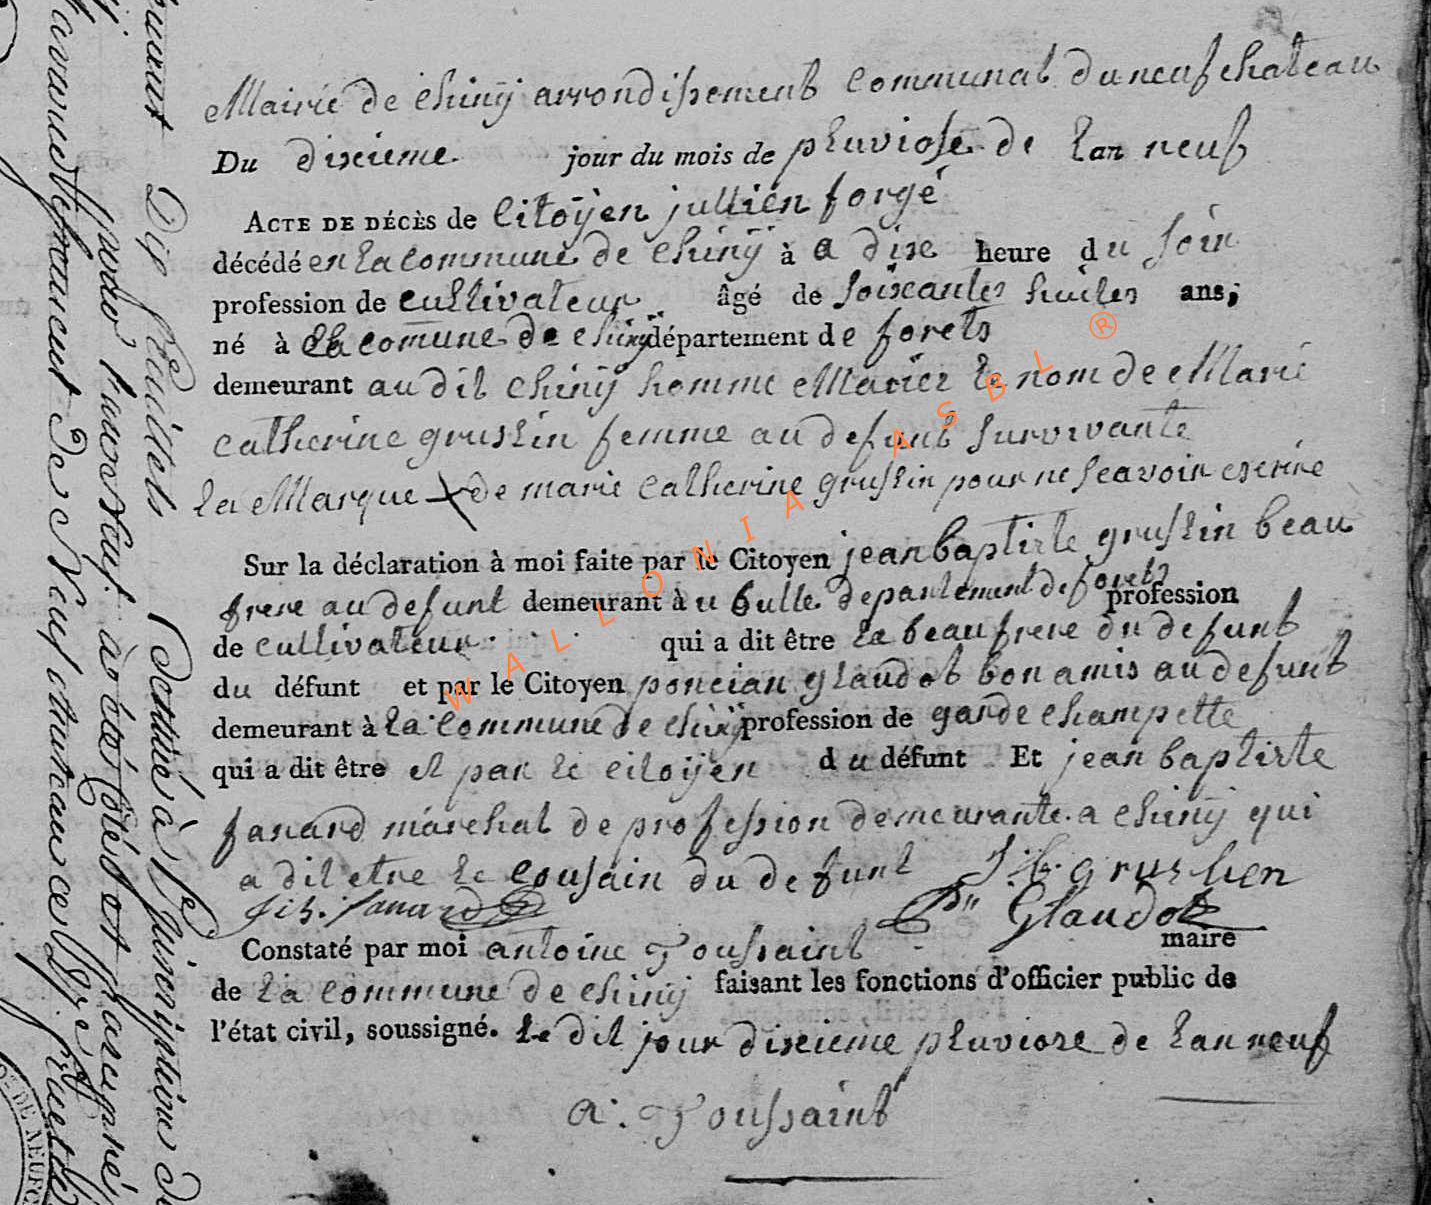 Mairie de chinÿ arrondissement communal du neufchateau
Du dixieme jour du mois de pluviose de l'an neuf
ACTE DE DÉCÈS de Citoÿen jullien forgé
décédé en la commune de chinÿ à a dixe heure du soir
profession de cultivateur âgé de soixantes huites ans;
né à la comune de chinÿ département de forets
demeurant au dit chinÿ homme Mariez le nom de Marie
catherine gruslin femme au defunt survivante
la Marque de marie catherine gruslin pour ne scavoir escrire
Sur la déclaration à moi faite par le Citoyen jean baptiste gruslin beau
frere au defunt demeurant à u bulle departement de forets profession
de cultivateur qui a dit être le beaufrere du defunt
du défunt et par le Citoyen poncian glaudot bon amis au defunt
demeurant à la commune de chinÿ profession de garde champette
qui a dit être et par le citoÿen du défunt Et jean baptiste
fanard maréchal de profession demeurante a chinÿ qui
a dit etre le cousain du defunt J: b: gruslien
J: b: fanard Pn Glaudot
Constaté par moi antoine Toussaint maire
de la commune de chinÿ faisant les fonctions d'officier public de
l'état civil, soussigné. le dit jour dixieme pluviose de l'an neuf
a: Toussaint
WALLONIA ASBL ®
Dix feuillets
Donné à